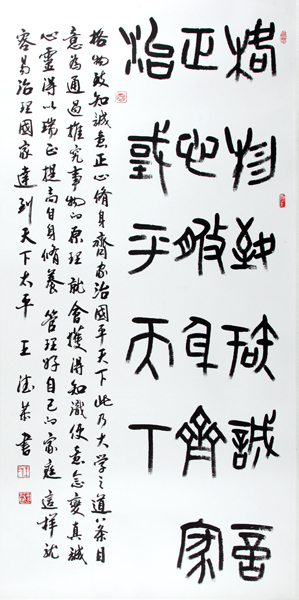 格物致知誠意
正心脩身齊家
治國平天下
格物致知誠意正心脩身齊家治國平天下此乃大学之道八条目
意為通過推究事物的原理就會獲得知識使意念變真誠
心靈得以端正提高自身脩養管理好自己的家庭這樣就
容易治理國家達到天下太平 王書